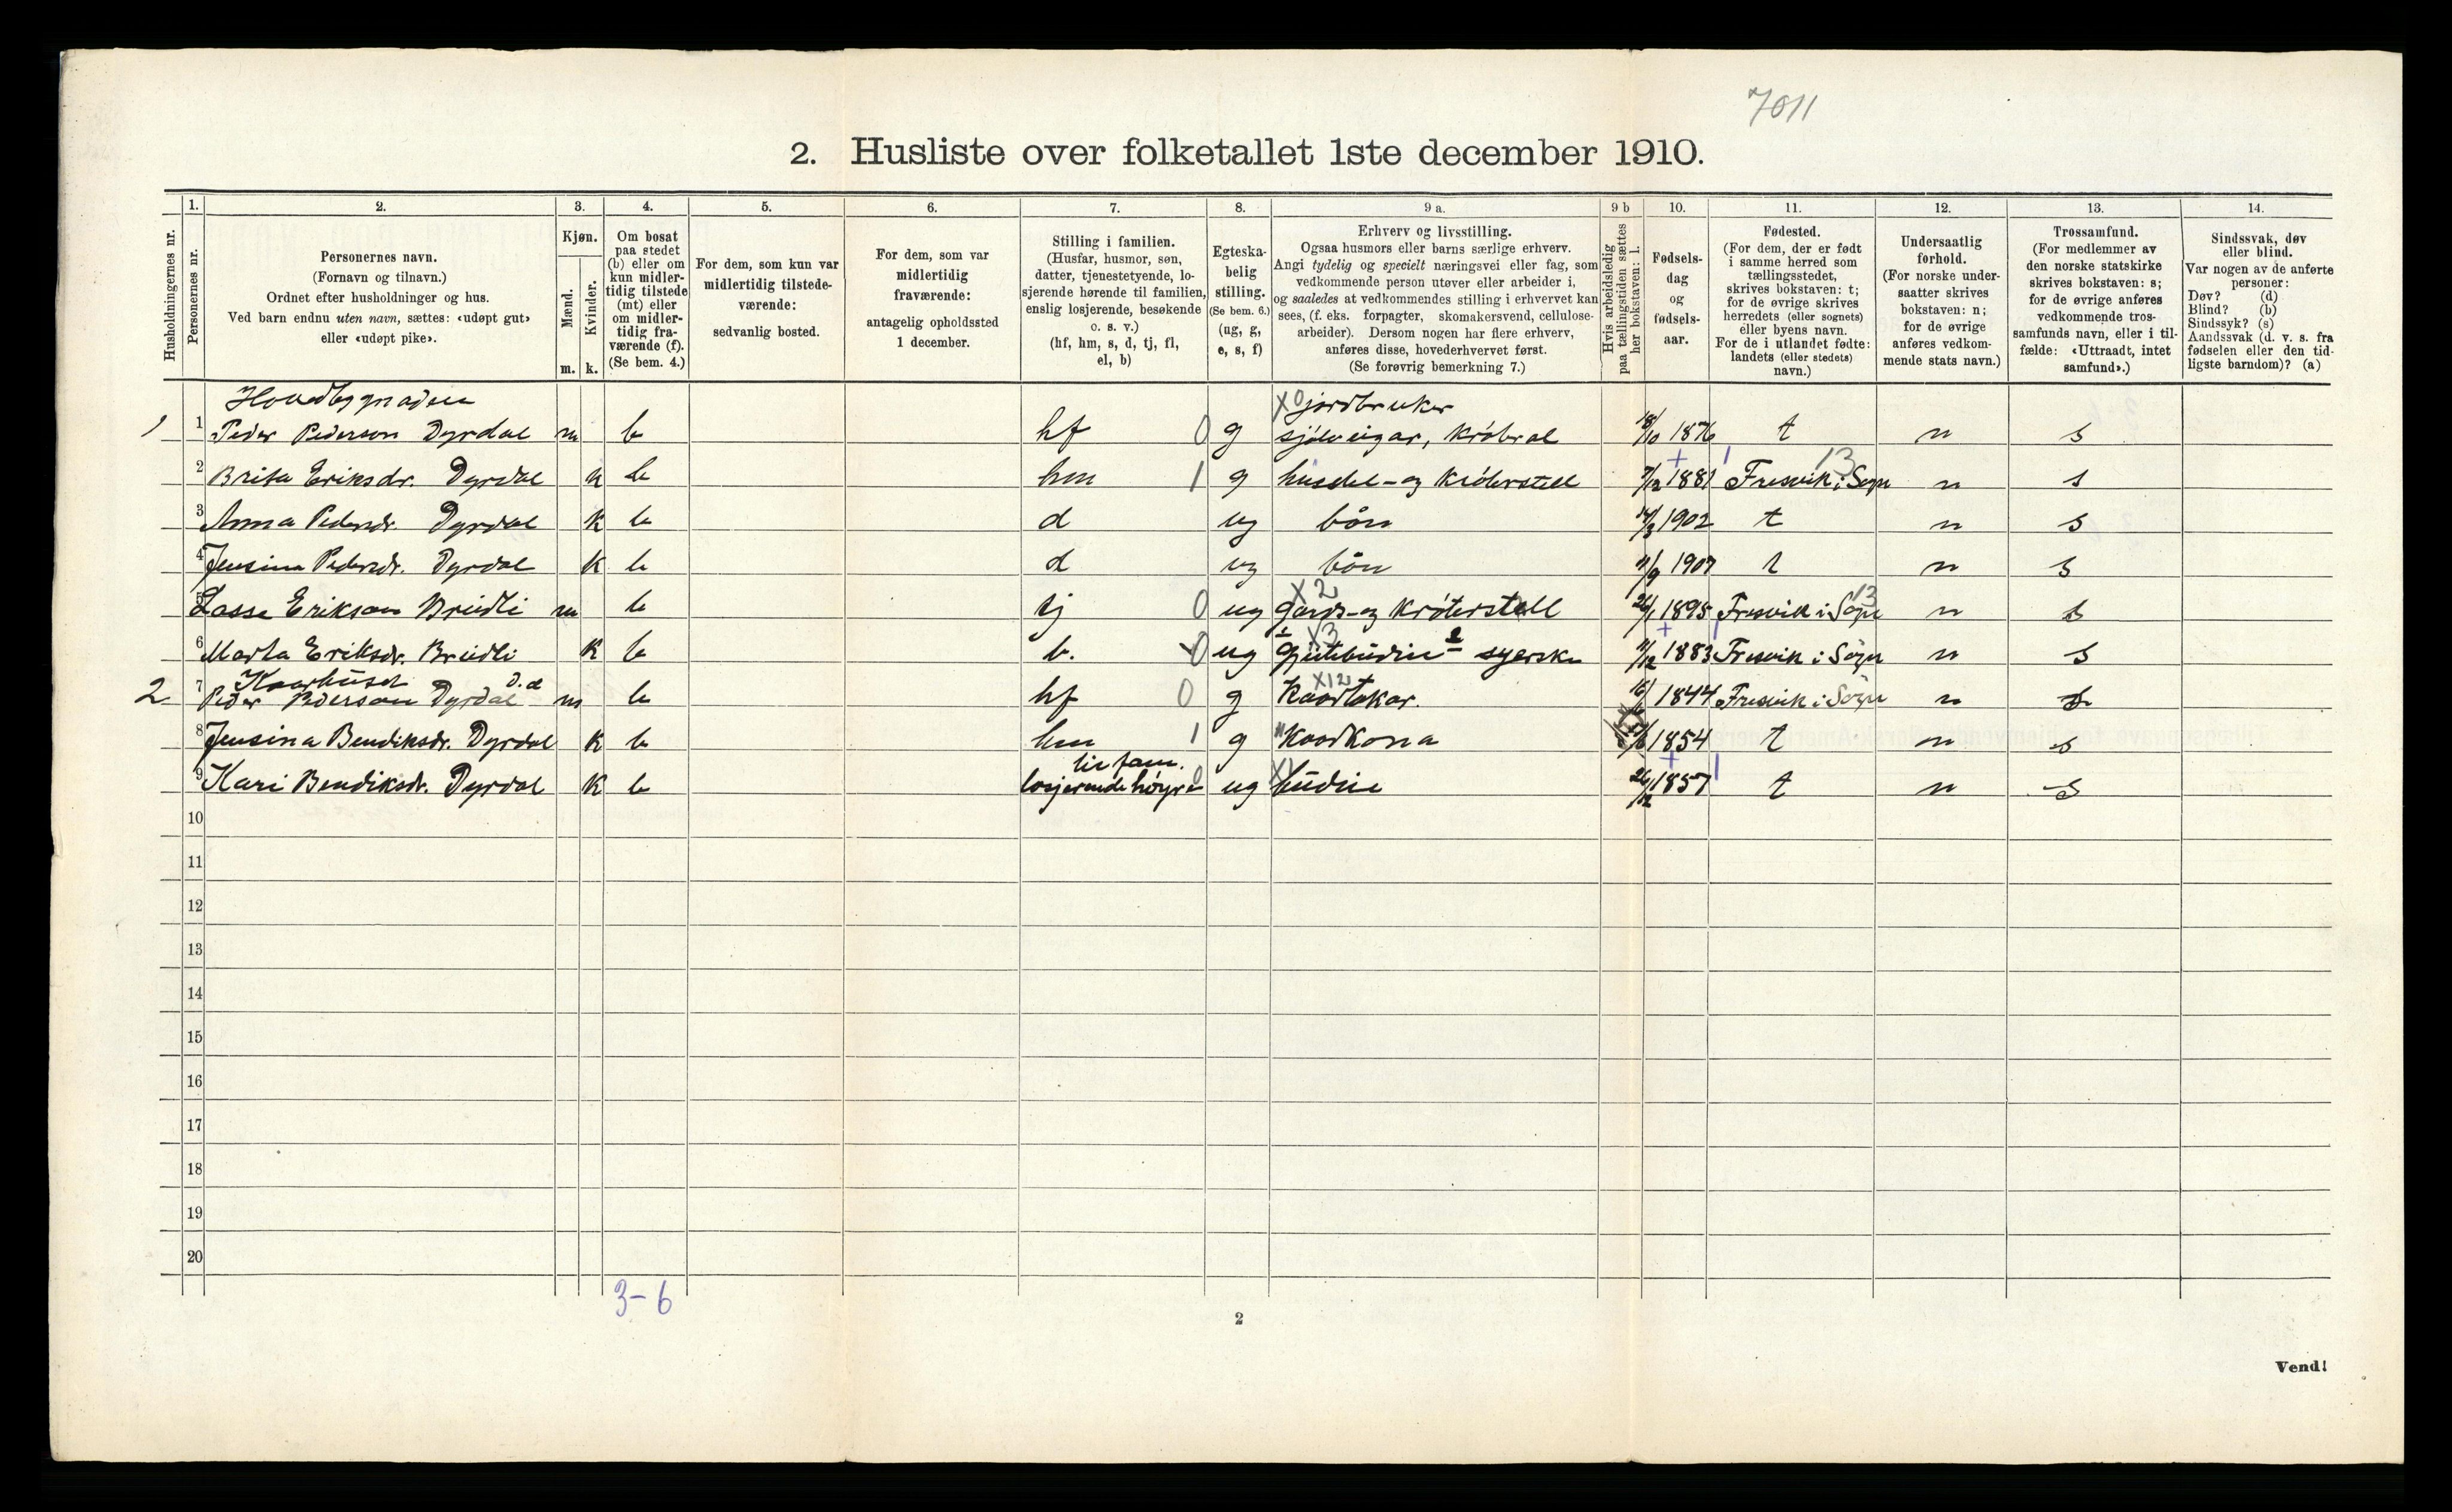 7011
2. Husliste over folketallet 1ste december 1910.
Husholdningernes nr.
1.
Personernes nr.
2.
Personernes navn.
(Fornavn og tilnavn.)
Ordnet efter husholdninger og hus.
Ved barn endnu uten navn, sættes: «udøpt gut»
eller «udøpt pike».
3.
Kjøn.
Mænd.
Kvinder.
m. k.
4.
Om bosat
paa stedet
(b) eller om
kun midler-
tidig tilstede
(mt) eller
om midler-
tidig fra-
værende (f).
(Se bem. 4.)
5.
For dem, som kun var
midlertidig tilstede-
værende:
sedvanlig bosted.
6.
For dem, som var
midlertidig
fraværende:
antagelig opholdssted
1 december.
7.
Stilling i familien.
(Husfar, husmor, søn,
datter, tjenestetyende, lo-
sjerende hørende til familien,
enslig losjerende, besøkende
o. s. v.)
(hf, hm, s, d, tj, fl,
el, b)
8.
Egteska-
belig
stilling.
(Se bem. 6.)
(ug, g,
e, s, f)
9 a.
Erhverv og livsstilling.
Ogsaa husmors eller barns særlige erhverv.
Angi tydelig og specielt næringsvei eller fag, som
vedkommende person utøver eller arbeider i,
og saaledes at vedkommendes stilling i erhvervet kan
sees, (f. eks. forpagter, skomakersvend, cellulose-
arbeider). Dersom nogen har flere erhverv,
anføres disse, hovederhvervet først.
(Se forøvrig bemerkning 7.)
9 b
Hvis arbeidsledig
paa tællingstiden sættes
her bokstaven: l.
10.
Fødsels-
dag
og
fødsels-
aar.
11.
Fødested.
(For dem, der er født
i samme herred som
tællingsstedet,
skrives bokstaven: t;
for de øvrige skrives
herredets (eller sognets)
eller byens navn.
For de i utlandet fødte:
landets (eller stedets)
navn.)
12.
Undersaatlig
forhold.
(For norske under-
saatter skrives
bokstaven: n;
for de øvrige
anføres vedkom-
mende stats navn.)
13.
Trossamfund.
(For medlemmer av
den norske statskirke
skrives bokstaven: s;
for de øvrige anføres
vedkommende tros-
samfunds navn, eller i til-
fælde: «Uttraadt, intet
samfund».)
14.
Sindssvak, døv
eller blind.
Var nogen av de anførte
personer:
Døv? (d)
Blind? (b)
Sindssyk? (s)
Aandssvak (d. v. s. fra
fødselen eller den tid-
ligste barndom)? (a)
X0 jordbruker
1 1 Peder Pederson Dyrdal m b hf 0 g sjølveigar, 18/10 1876 t n s
2 Brita Eriksdr. Dyrdal k b hm 1 g husstel- og krøterstell 7/12 1881 Fresvik i Sogn 13 n s
3 Anna Pedersdr. Dyrdal k b d ug bån 14/3 1902 t n s
4 Jensina Pedersdr. Dyrdal k b d ug bån 1907 t n s
X2
5 Lasse Erikson Breidli m b tj 0 ug gards- og krøterstell 26/1 1895 Fresvik i Sogn 13 n s
X3
6 Marta Eriksdr. Breidli k b b. 0 ug syerske 1883 Fresvik i Sogn n s
Kaarhuset
d.e X12
2 7 Peder Pederson Dyrdal m b hf 0 g Kaartakar. 1844 Fresvik i Sogn n s
8 Jensina Bendiksdr. Dyrdal k b hm 1 g Kaarkona 1854 t n s
til fam.
9 Kari Bendiksdr. Dyrdal k b losjerende høyr 0 ug budeie 26/12 1857 t n s
10
11
12
13
14
15
16
17
18
19
20
3-6
2
Vend!